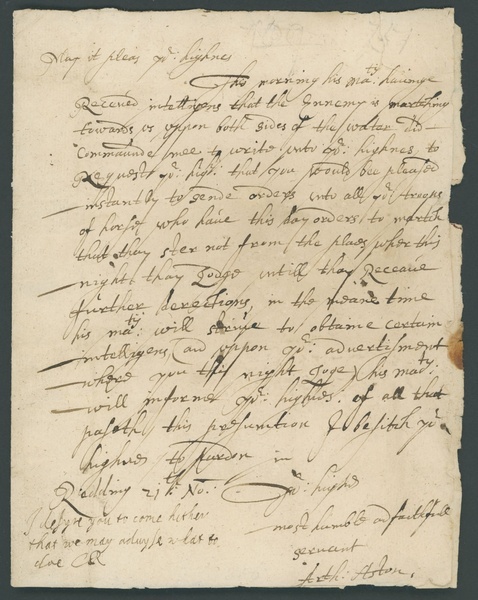 May it pleas yor: highnes
This morning his Maty haueinge
Receued intelligens that the Ennemy is martching
towards vs vppon both sides of the water did
Commaunde mee to write vnto yor: highnes, to
Request yor: highs: that you would bee pleased
instantly to sende orders vnto all yor: troops
of horse, who haue this day orders to martch
that thay ster not from the places wher this
night thay Lodge vntill thay Receaue
further derections, in the meane time
his maty: will striue to obtaine certain
intelligens, and vppon yor: advertisment
where you this night loge, his maty:
will informe yor: highnes: of all that
paseth, this presumtion I besitch yor
highnes to Pardon in
Redding 21th: No: yor: highs
I desyre you to come hither
that we may aduyse what to
doe CR
most humble and faithfull
seruant
Arth: Aston.